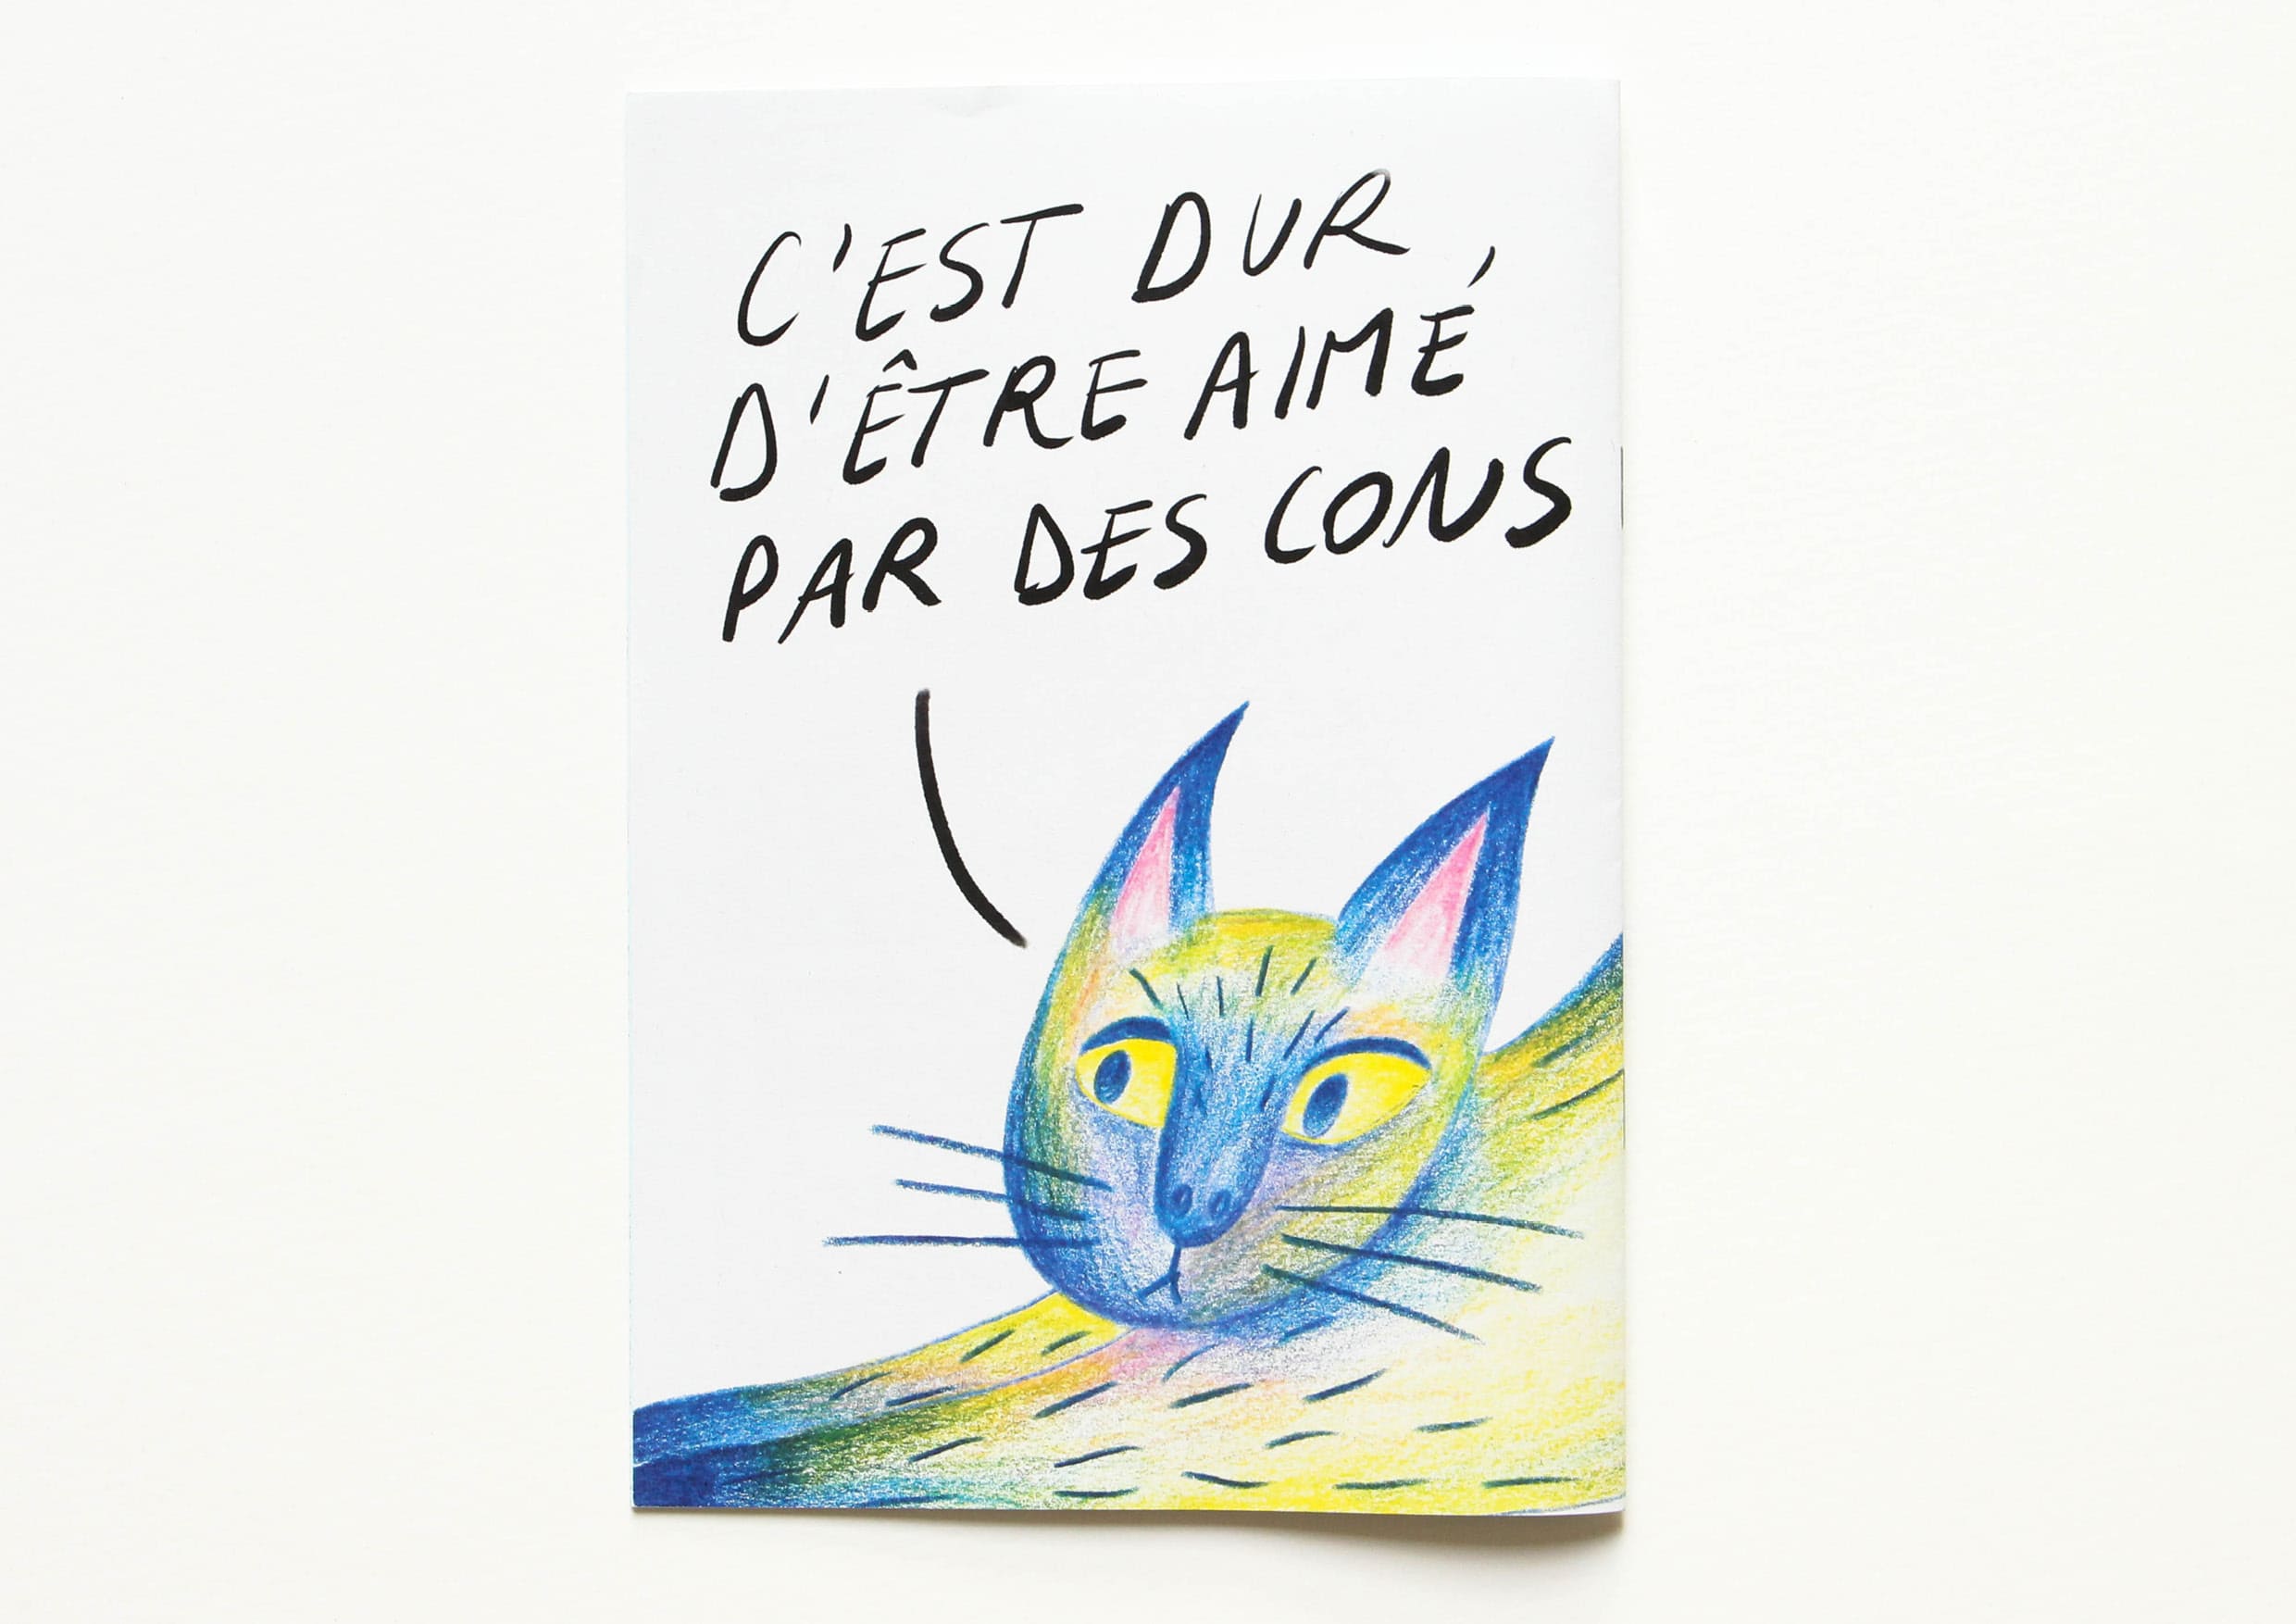 C'EST DUR
D'ÊTRE AIMÉ
PAR DES CONS